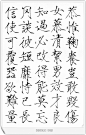 恭惟鞠養豈敢毀傷
女慕男效才良
知過必改得能莫忘
罔談彼短靡恃己長
信使可覆器欲難量